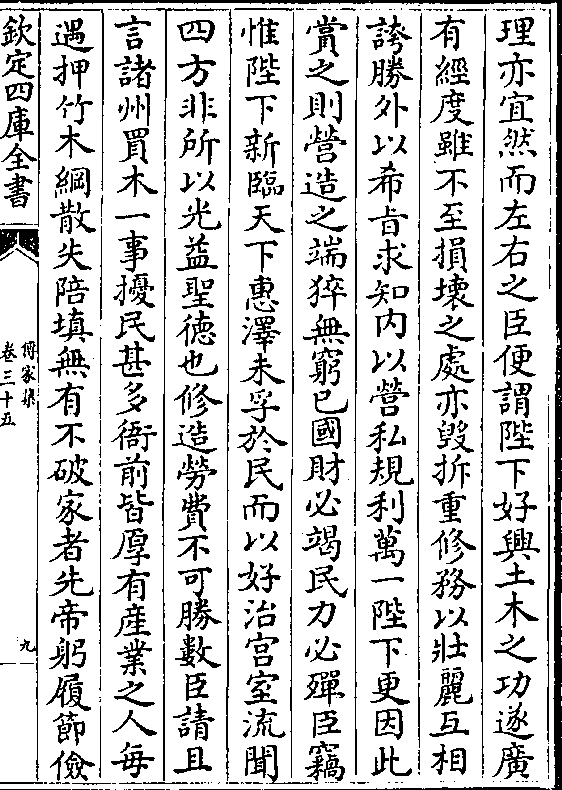 理亦宜然而左右之臣便謂陛下好興土木之功遂廣
有經度雖不至損壞之處亦毀拆重修務以壯麗互相
誇勝外以希㫖求知内以營私規利萬一陛下更因此
賞之則營造之端猝無窮已國財必竭民力必殫臣竊
惟陛下新臨天下惠澤未孚於民而以好治宫室流聞
四方非所以光益聖徳也修造勞費不可勝數臣請且
言諸州買木一事擾民甚多衙前皆厚有産業之人每
遇押竹木綱散失陪填無有不破家者先帝躬履節儉
欽定四庫全書
傳家集
卷三十五
九